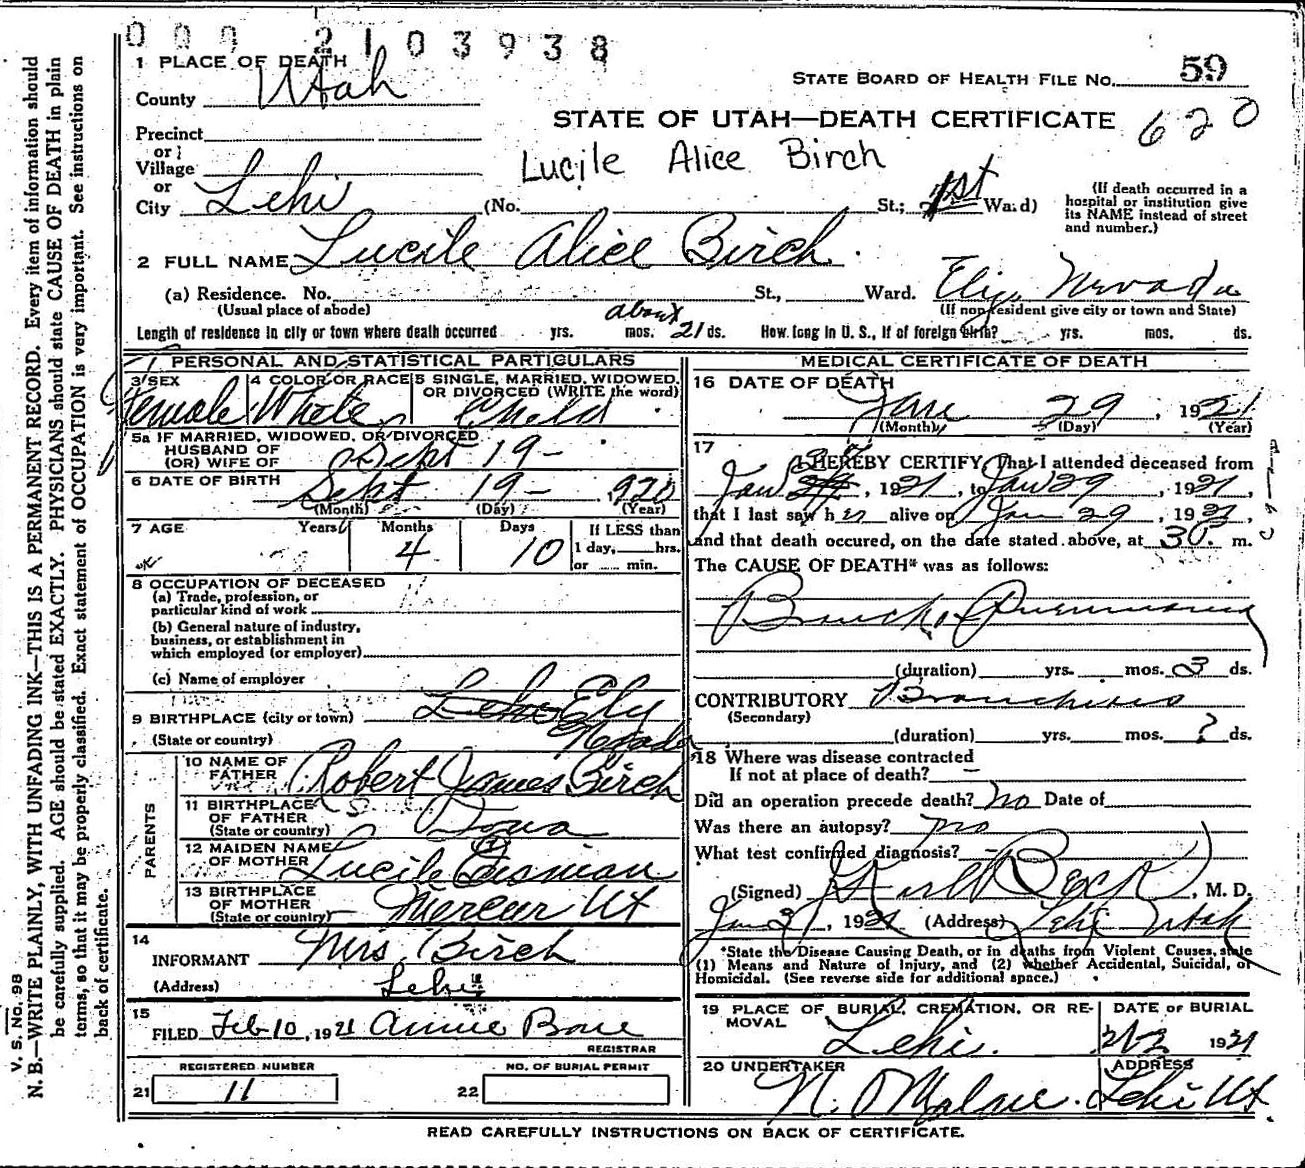 N. B.—WRITE PLAINLY, WITH UNFADING INK—THIS IS A PERMANENT RECORD. Every item of information should
be carefully supplied. AGE should be stated EXACTLY. PHYSICIANS should state CAUSE OF DEATH in plain
terms, so that it may be properly classified. Exact statement of OCCUPATION is very important. See instructions on
back of certificate.
V. S. No. 98
2103938
1 PLACE OF DEATH
County Utah
STATE BOARD OF HEALTH FILE No. 59
Precinct
or
Village
or
City Lehi
STATE OF UTAH—DEATH CERTIFICATE 620
Lucile Alice Birch
(No. St.; 1st Ward)
(If death occurred in a
hospital or institution give
its NAME instead of street
and number.)
2 FULL NAME Lucile Alice Birch
(a) Residence. No. St., Ward. Ely Nevada
(Usual place of abode) (If non-resident give city or town and State)
Length of residence in city or town where death occurred yrs. mos. about 21 ds. How long in U. S., if of foreign birth? yrs. mos. ds.
PERSONAL AND STATISTICAL PARTICULARS
3 SEX Female
4 COLOR OR RACE White
5 SINGLE, MARRIED, WIDOWED,
OR DIVORCED (WRITE the word)
Child
5a IF MARRIED, WIDOWED, OR DIVORCED
HUSBAND OF
(OR) WIFE OF Sept 19-
6 DATE OF BIRTH Sept 19- 1920
(Month) (Day) (Year)
7 AGE Years Months 4 Days 10
If LESS than
1 day, hrs.
or min.
8 OCCUPATION OF DECEASED
(a) Trade, profession, or
particular kind of work
(b) General nature of industry,
business, or establishment in
which employed (or employer)
(c) Name of employer
9 BIRTHPLACE (city or town) Lehi Ely
(State or country) Nevada
PARENTS
10 NAME OF
FATHER Robert James Birch
11 BIRTHPLACE
OF FATHER
(State or country) Iowa
12 MAIDEN NAME
OF MOTHER Lucile
13 BIRTHPLACE
OF MOTHER
(State or country) Mercur Ut
14
INFORMANT Mrs Birch
(Address) Lehi
15
FILED Feb 10, 1921 Annie
REGISTRAR
REGISTERED NUMBER
21 11
NO. OF BURIAL PERMIT
22
MEDICAL CERTIFICATE OF DEATH
16 DATE OF DEATH
Jan 29, 1921
(Month) (Day) (Year)
17
I HEREBY CERTIFY, That I attended deceased from
Jan, 1921, to Jan 29, 1921,
that I last saw her alive on Jan 29, 1921,
and that death occured, on the date stated above, at 30. m.
The CAUSE OF DEATH* was as follows:
Broncho Pneumonia
(duration) yrs. mos. 3 ds.
CONTRIBUTORY Bronchitis
(Secondary)
(duration) yrs. mos. ? ds.
18 Where was disease contracted
If not at place of death? –
Did an operation precede death? no Date of
Was there an autopsy? no
What test confirmed diagnosis? –
(Signed), M. D.
Jan, 1921 (Address) Lehi Utah
*State the Disease Causing Death, or in deaths from Violent Causes, state
(1) Means and Nature of Injury, and (2) whether Accidental, Suicidal, or
Homicidal. (See reverse side for additional space.)
19 PLACE OF BURIAL, CREMATION, OR RE-
MOVAL
Lehi.
DATE OF BURIAL
1921
20 UNDERTAKER
ADDRESS
Lehi Ut.
READ CAREFULLY INSTRUCTIONS ON BACK OF CERTIFICATE.